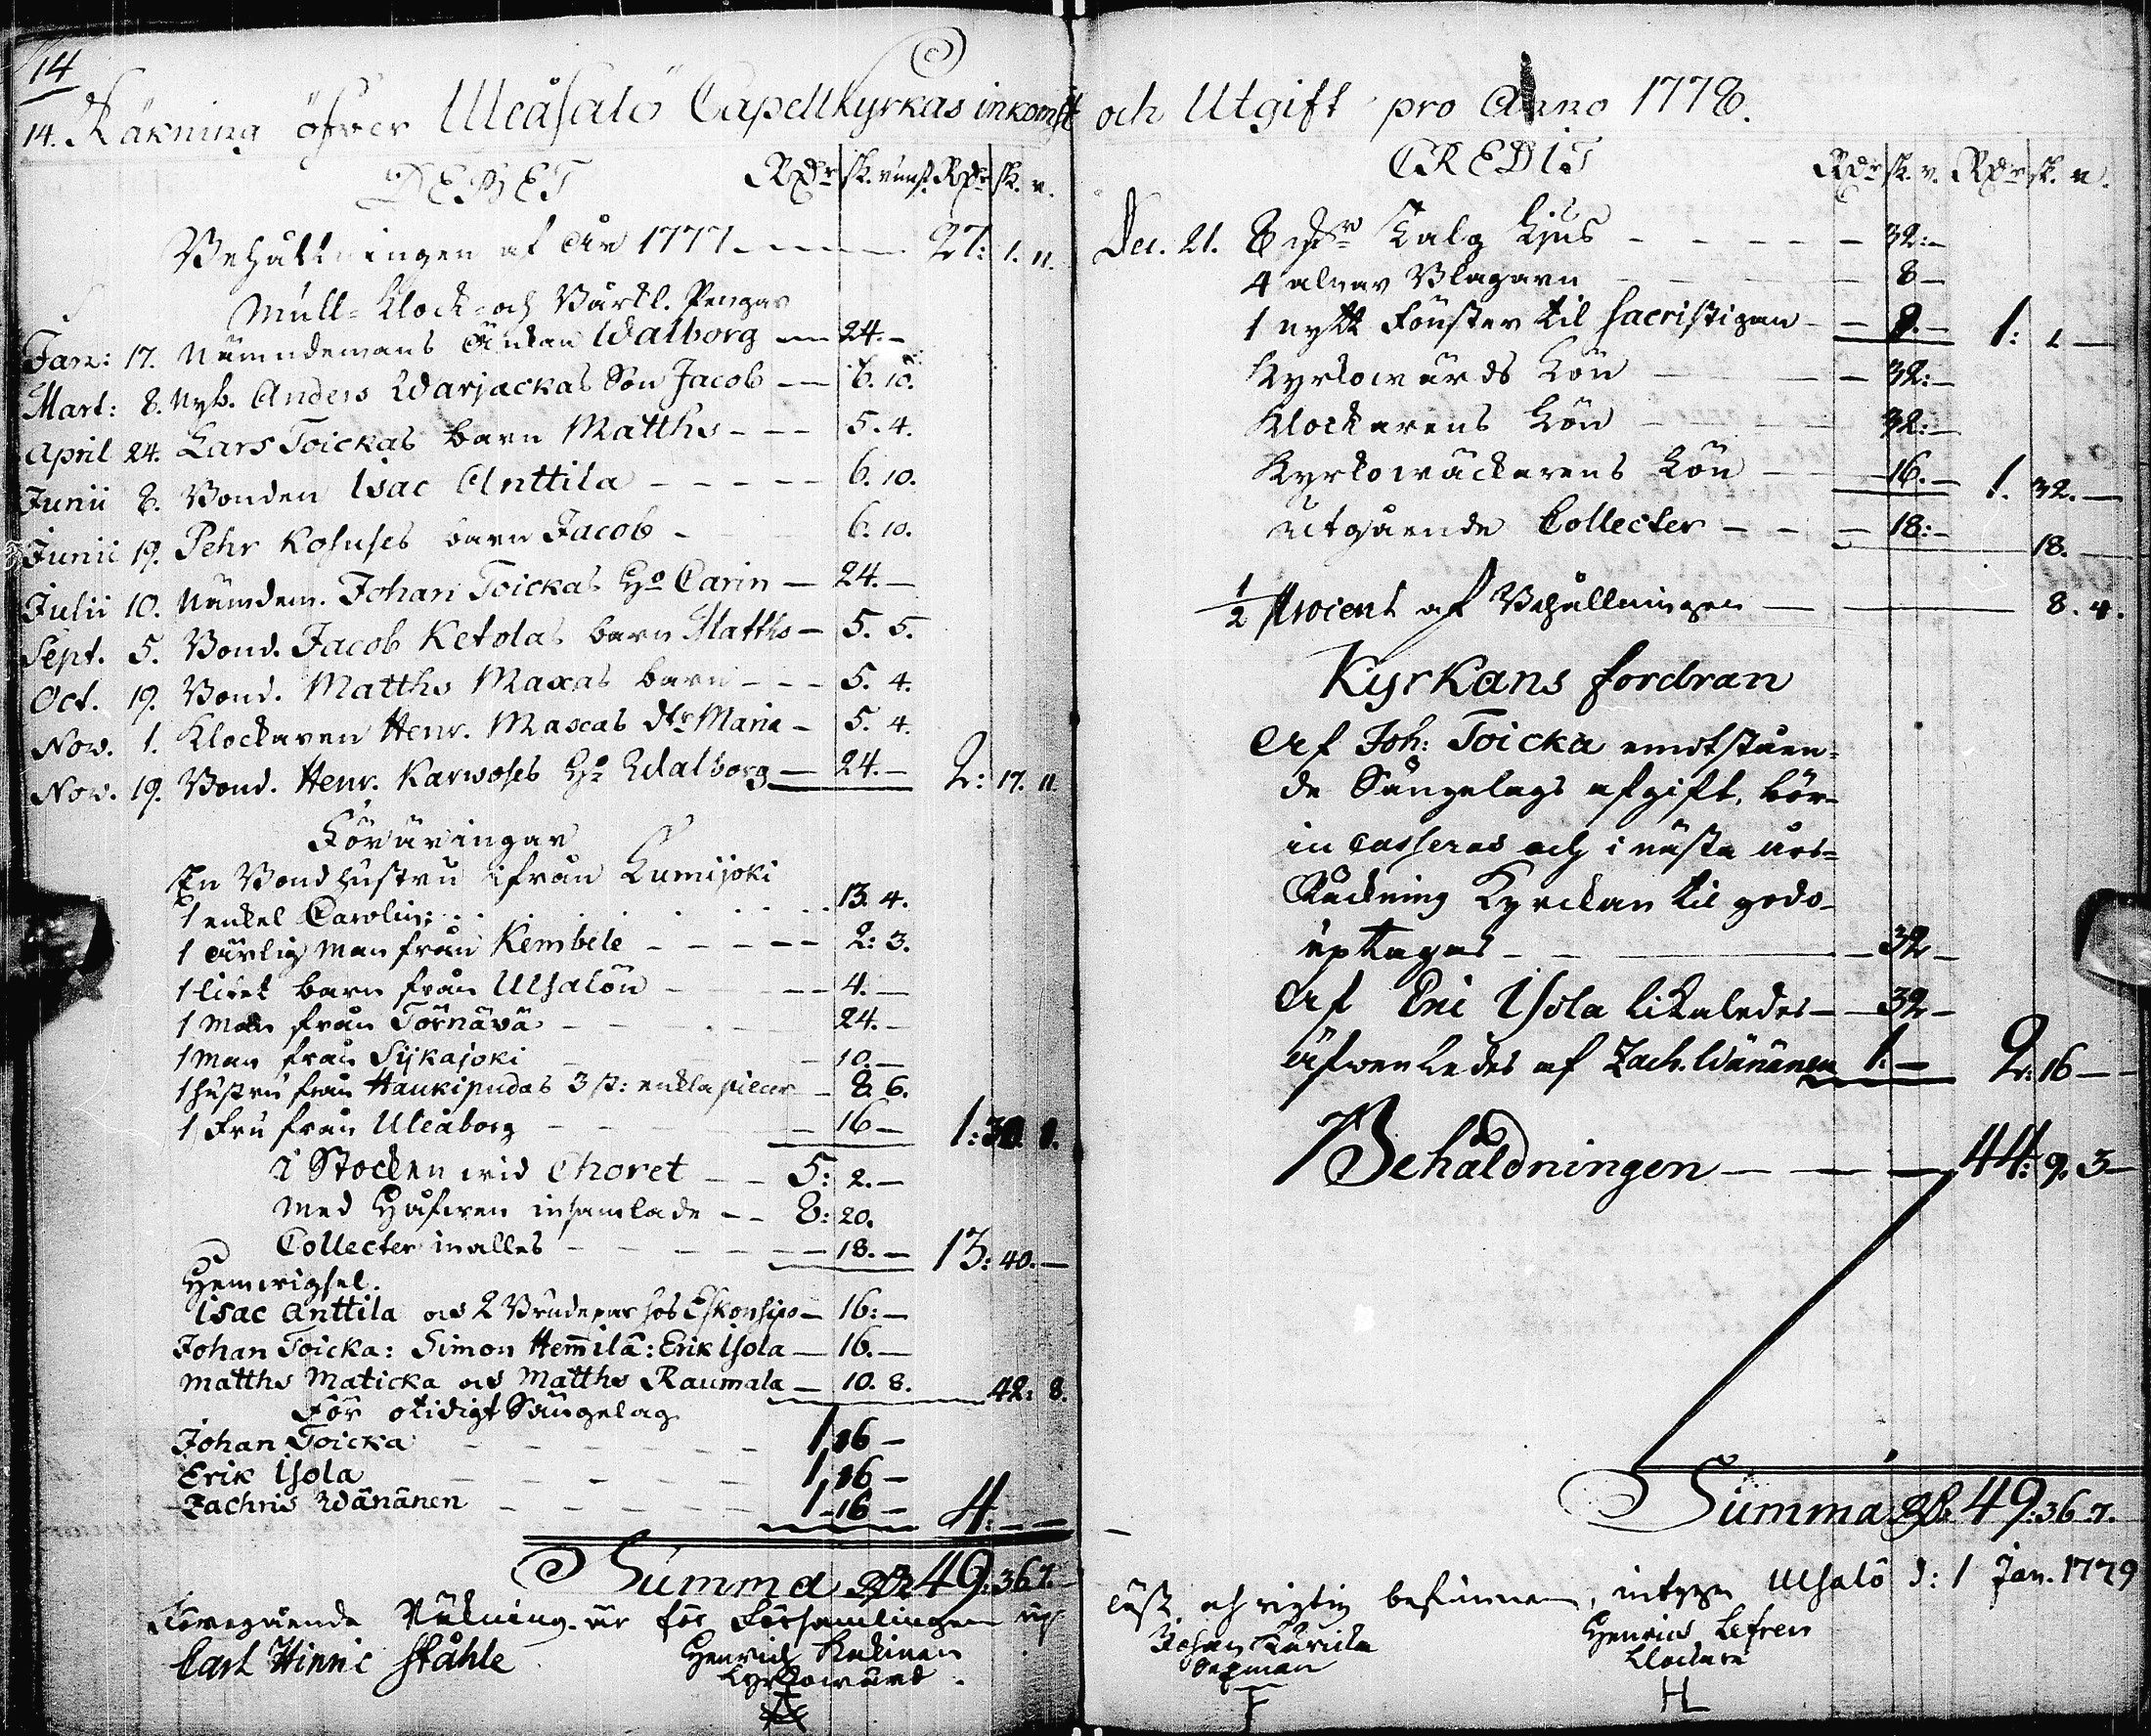 14
14. Räkning öfver Uleåsalo Capellkyrkas inkomst
DEBET Rdr sk. runst. Rdr sk. r.
Behåltningen af År 1777 - - - 27: 1. 11.
Mull- Klock- och Bårkl. Pengar
Jan: 17. Nämndemans Änkan Walborg - 24. -
Mart: 8. Nyb. Anders Warjackas Son Jacob - - 6. 10.
April 24. Lars Toickas barn Matths - - - 5. 4.
Junii 8. Bonden Isac Anttila - - - - - 6. 10.
Junii 19. Pehr Kosuses barn Jacob - 6. 10.
Julii 10. Nämdem. Johan Toickas Ho Carin - 24. -
Sept. 5. Bond. Jacob Ketolas barn Matths - 5. 5.
Oct. 19. Bond. Matths Maxas barn - - - 5. 4.
Nov. 1. Klockaren Henr. Maxas dtr Maria - 5. 4.
Nov. 19. Bond. Henr. Karwoses Ho Walborg - 24. - 2: 17. 11.
Föräringar
En Bondhustru ifrån Lumijoki
1 enkel Carolin: . . . . . . 13. 4.
1 ärlig man från Kembele - - - - - 2: 3.
1 litet barn från Ulsalön - - - - 4. -
1 Man från Törnävä - - - 24. -
1 Man från Sijkajoki - - 10. -
1 hustru från Haukipudas 3 st: enkla piecer - 8. 6.
1 Fru från Uleåborg - - - - 16 - 1: 30. 1.
i Stocken wid Choret - - 5: 2. -
Med Håfwen insamlade - - 8: 20.
Collecter in alles - - - - - 18. - 13: 40. -
Hemvigsel.
Isac Anttila och 2 Brudepar hos Eskonsipo - 16: -
Johan Toicka: Simon Hemmilä: Erik Isola - 16. -
Matths Maticka och Matths Raumala - 10. 8. 42: 8.
För otidigt Sängelag
Johan Toicka - - - - - - 1 16 -
Erik Isola - - - - - 1, 16 -
Zachris Wänänen - - - - - 1 - 16 - 4: - -
Summa Rdr 49: 36 7. -
Föregående Räkning är för Församlingen up
Carl Hinric Ståhle
Henrich Kakinen
Kyrkowärd.
och Utgift pro Anno 1778.
CREDIT Rdr sk. r. Rdr sk. r.
Dec. 21. 8 Talg Ljus - - - - - 32: -
4 alnar Blagarn - - - 8 -
1 nytt Fönster til Sacristigan - - 9. - 1: 1 -
Kyrkowärds Lön - - - 32: -
Klockarens Lön - - - 32: -
Kyrkowäckarens Lön - 16. - 1. 32. -
Utgående Collecter - - - 18: - 18. -
1/2 procent af Behållningen - 8. 4.
Kyrkans fordran
Af Joh: Toicka emotståen-
de Sängelags afgift, bör
in casseras och i nästa års-
Räckning Kyrckan til godo
uptagas - - - 32 -
Af Eric Isola likaledes - 32 -
Äfwenledes af Zach. Wänänen 1: - 2: 16 - -
Behåldningen - - - 44: 9. 3 -
Summa Rdr 49: 36 7.
läst och rigtig befunnen, intygar Ulsalo d: 1 Jan. 1779
Johan Karicka
Sexman
Henrics Lefren
Klockare
H L